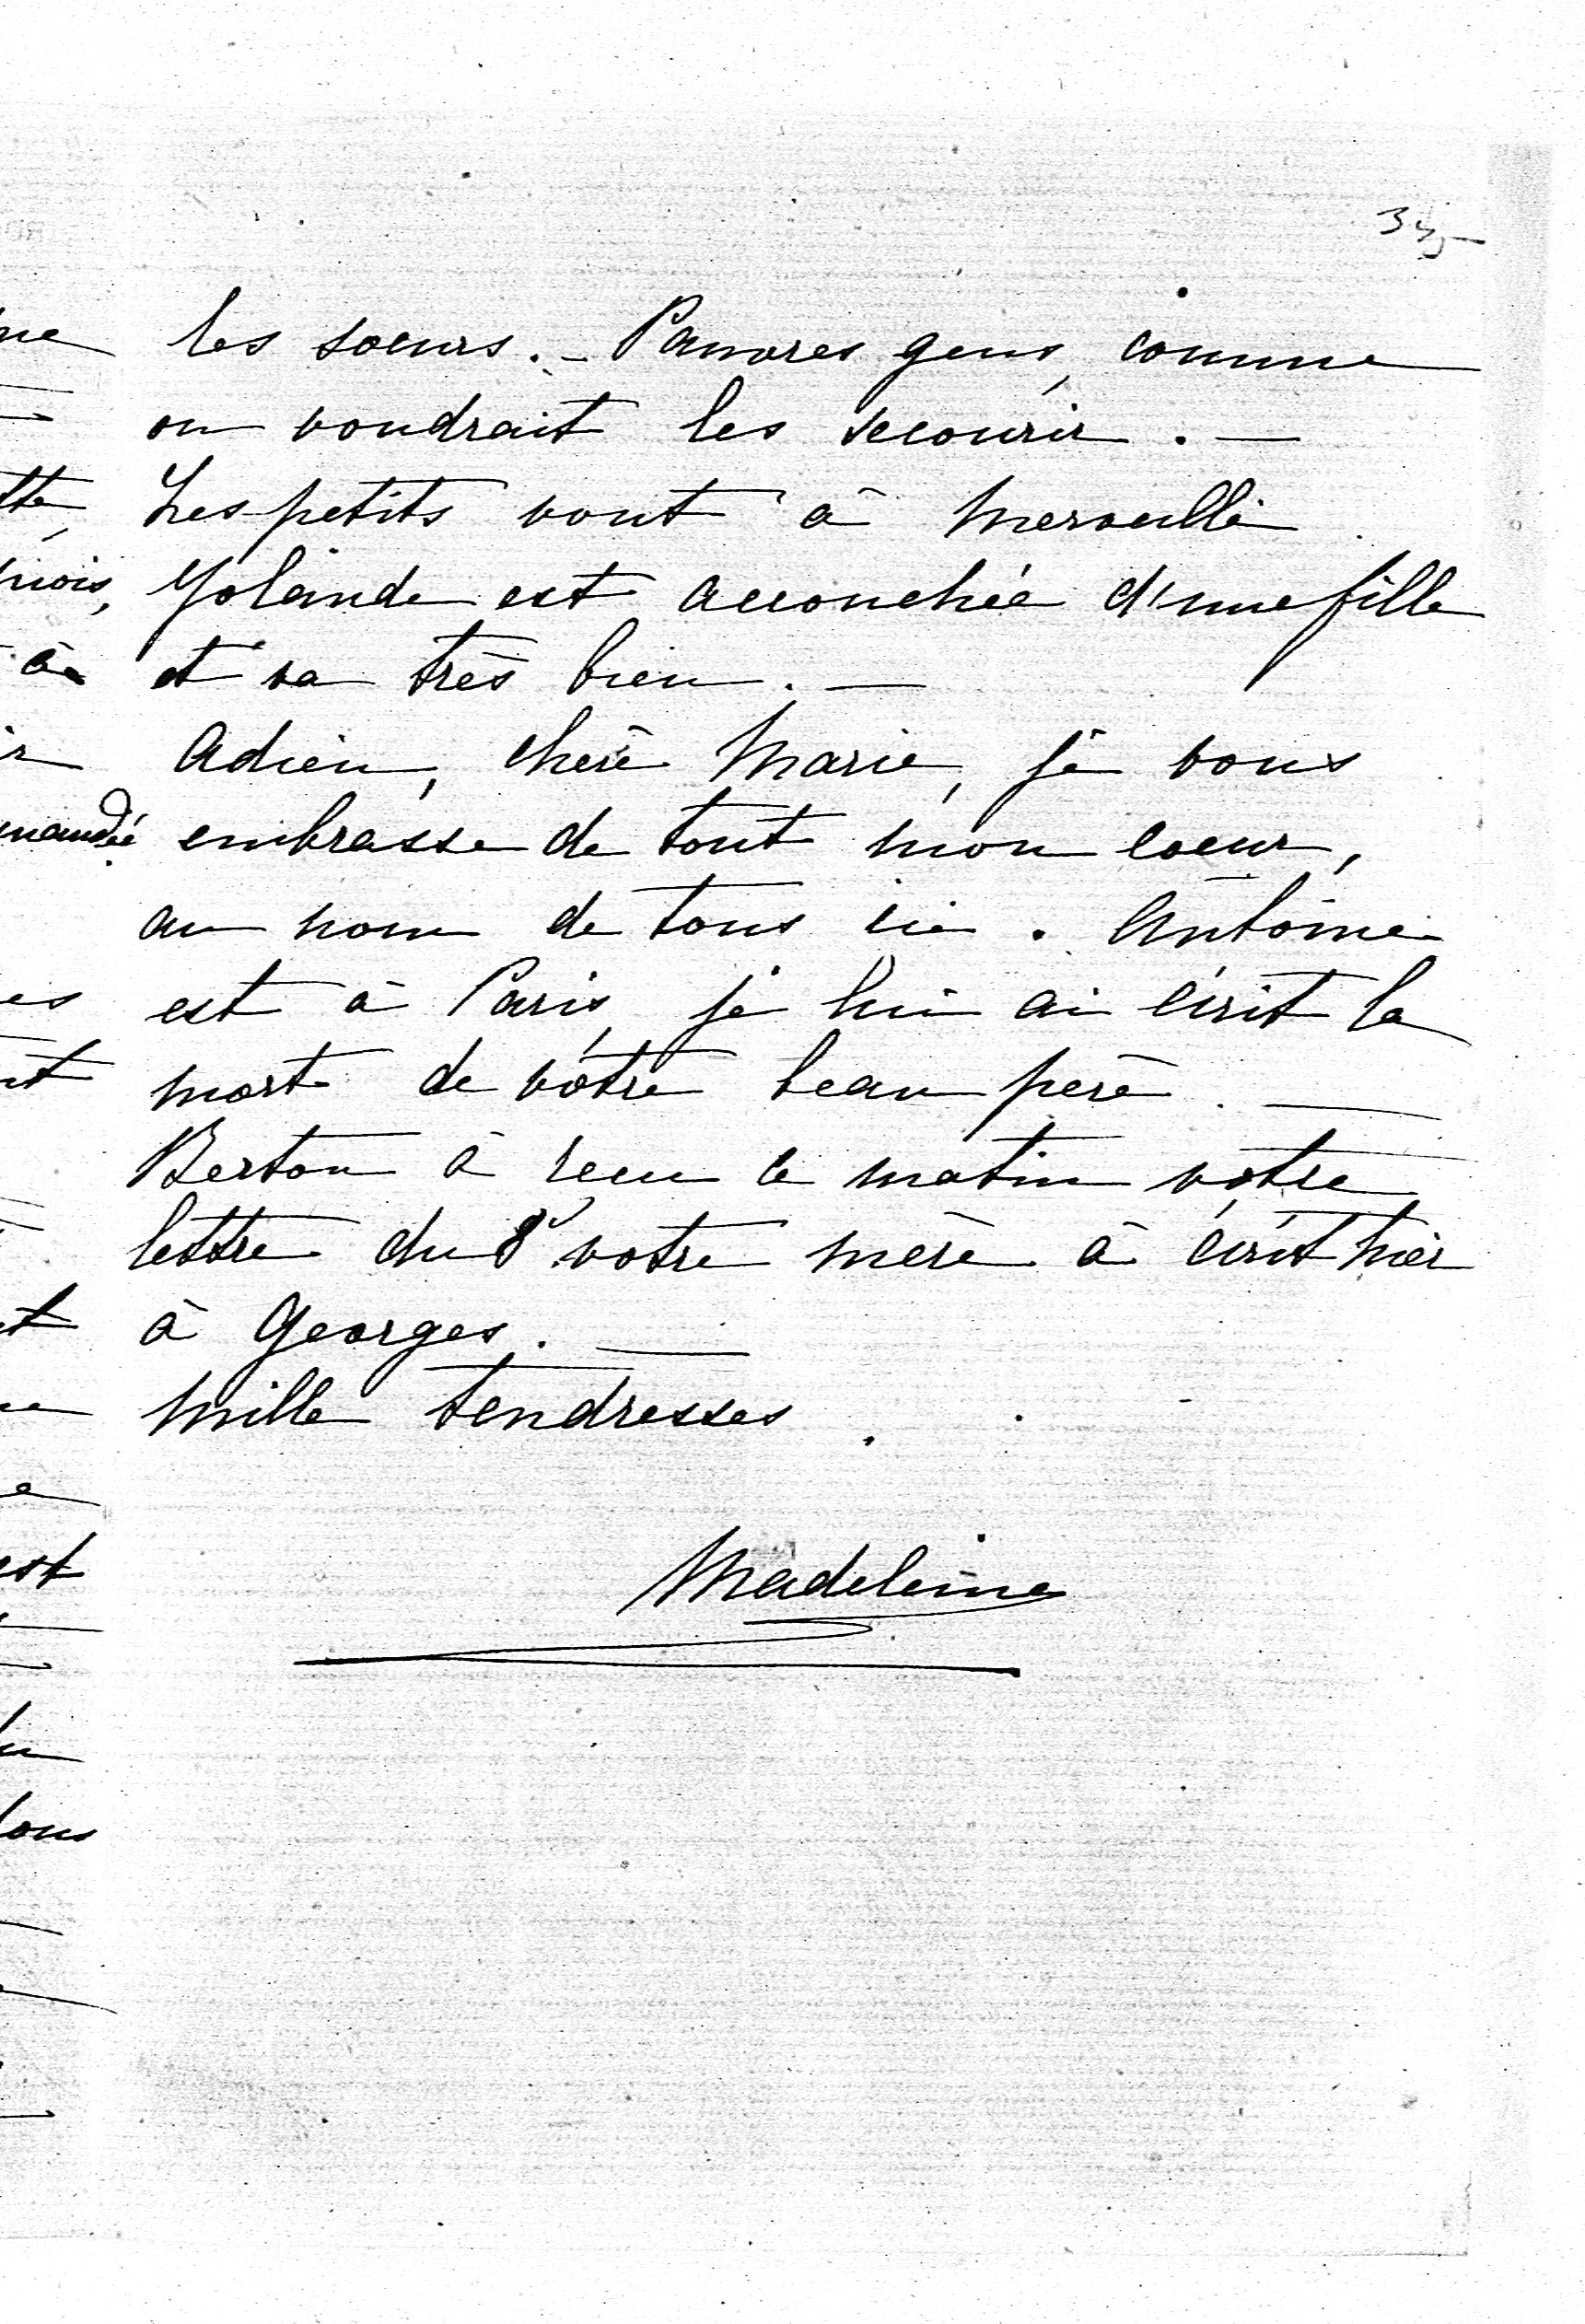 345
les soeurs. - Pauvres gens, comme
on voudrait les secourir. -
Les petits vont à merveille.
Yolande est accouchée d'une fille
et va très bien. -
Adieu, chère Marie, je vous
embrasse de tout mon coeur,
au nom de tous ici. Antoine
est à Paris, je lui ai écrit la
mort de vôtre beau père. -
Berton à reçu ce matin vôtre
lettre du 8, votre mère à écrit hier
à Georges. -
Mille tendresses.
Madeleine